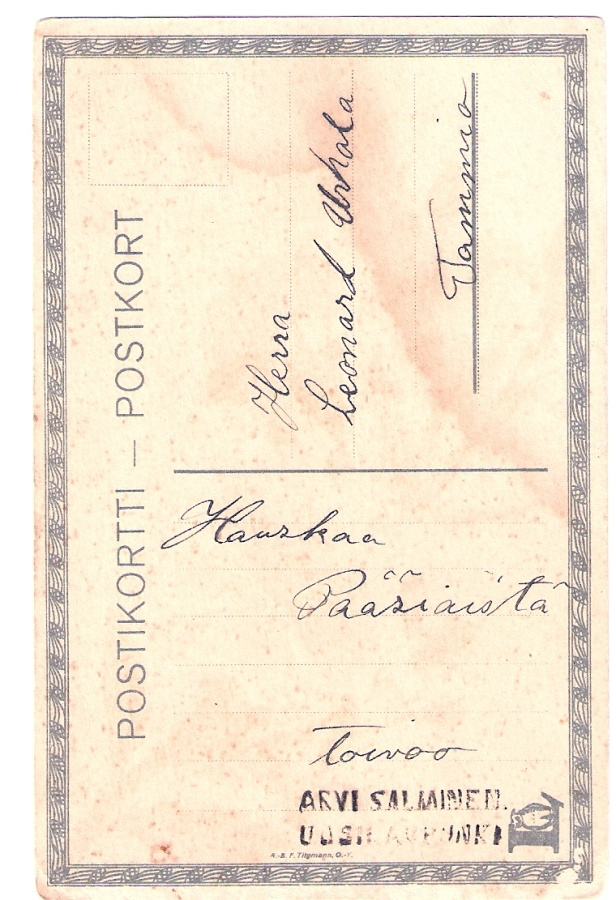 POSTIKORTTI — POSTKORT
Herra
Leonard Urhola
Tammio
Hauskaa
Pääsiäistä
toivoo
ARVI SALMINEN.
UUSIKAUPUNKI
A.-B. F. Tilgmann, O.-Y.